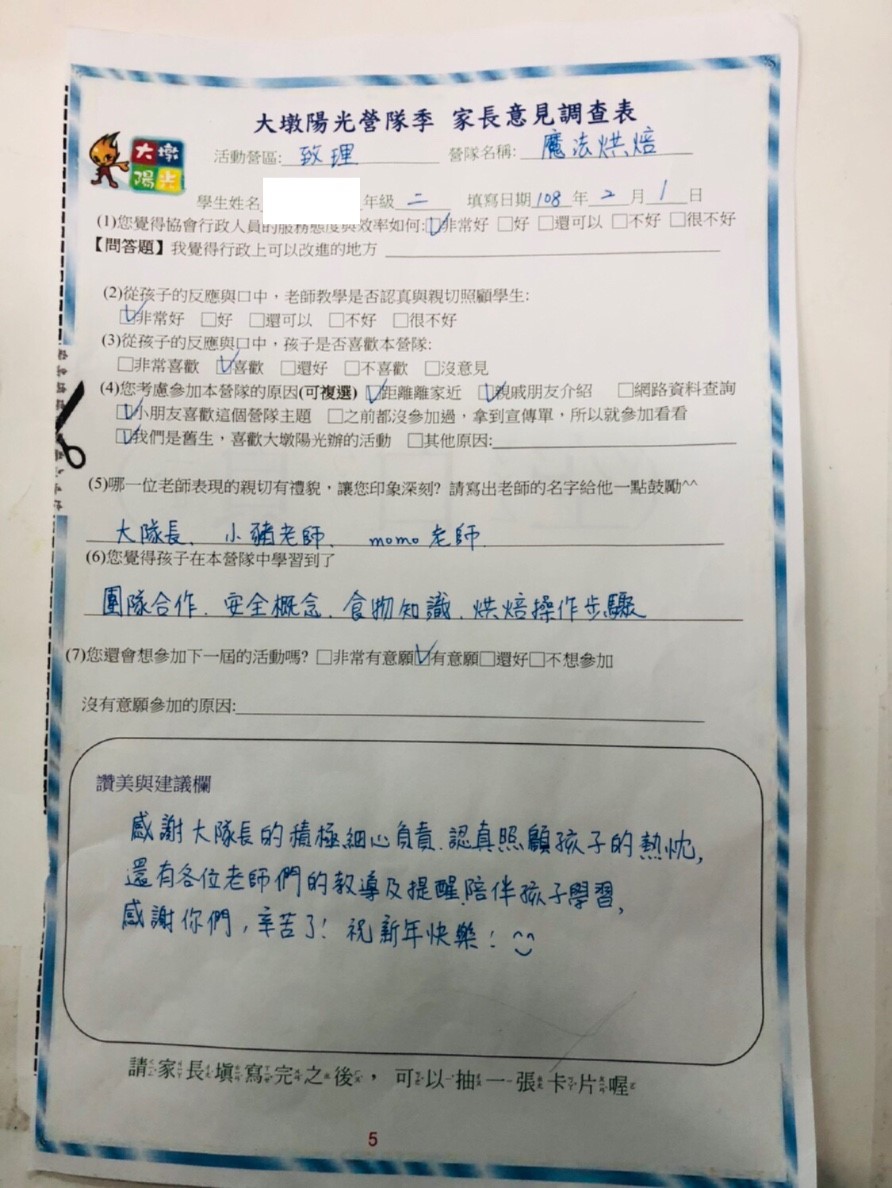 大墩陽光營隊季 家長意見調查表
大墩
陽光
活動營區: 致理 營隊名稱: 魔法烘焙
學生姓名 年級 二 填寫日期 108 年 2 月 1 日
(1)您覺得協會行政人員的服務態度與效率如何:☑非常好 □好 □還可以 □不好 □很不好
【問答題】我覺得行政上可以改進的地方
(2)從孩子的反應與口中，老師教學是否認真與親切照顧學生:
☑非常好 □好 □還可以 □不好 □很不好
(3)從孩子的反應與口中，孩子是否喜歡本營隊:
□非常喜歡 ☑喜歡 □還好 □不喜歡 □沒意見
(4)您考慮參加本營隊的原因(可複選) ☑距離離家近 ☑親戚朋友介紹 □網路資料查詢
☑小朋友喜歡這個營隊主題 □之前都沒參加過，拿到宣傳單，所以就參加看看
☑我們是舊生，喜歡大墩陽光辦的活動 □其他原因:
(5)哪一位老師表現的親切有禮貌，讓您印象深刻? 請寫出老師的名字給他一點鼓勵^^
大隊長、小豬老師、momo老師
(6)您覺得孩子在本營隊中學習到了
團隊合作、安全概念、食物知識、烘焙操作步驟
(7)您還會想參加下一屆的活動嗎? □非常有意願☑有意願□還好□不想參加
沒有意願參加的原因:
讚美與建議欄
感謝大隊長的積極細心負責、認真照顧孩子的熱忱,
還有各位老師們的教導及提醒陪伴孩子學習,
感謝你們,辛苦了! 祝新年快樂! ^^
請家長填寫完之後，可以抽一張卡片喔
5